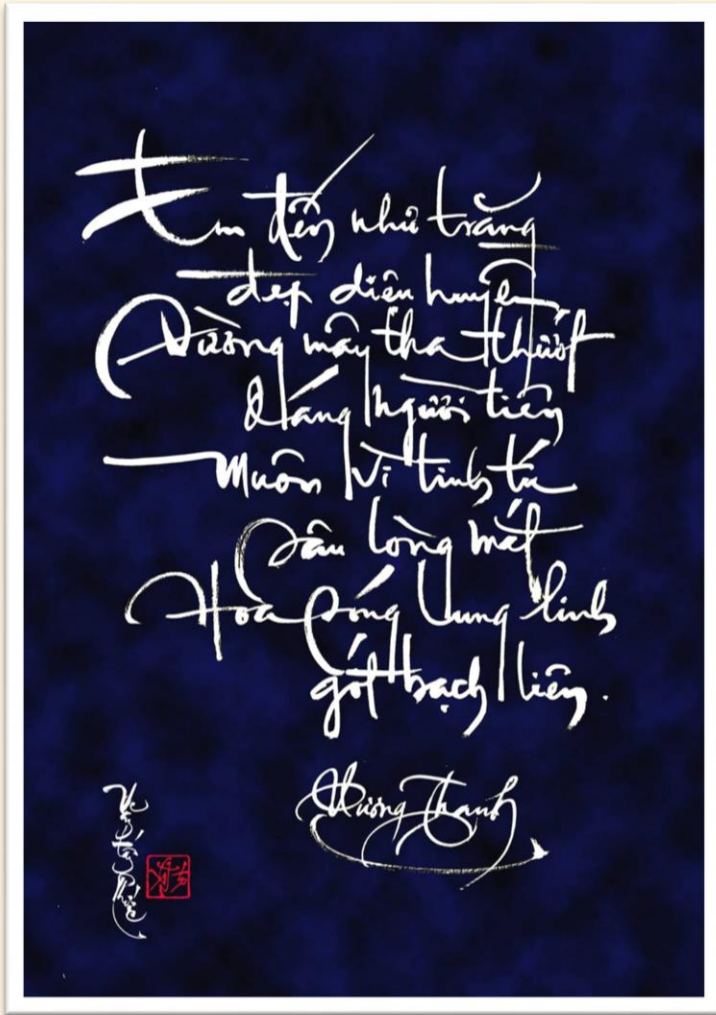 Em đến như trăng
đẹp diễm huyền
Đường mây tha thướt
Dáng người tiên
Muôn vì tinh tú
Sâu lòng mắt
Hoa sóng lung linh
gót bạch liên.
Hương Thanh